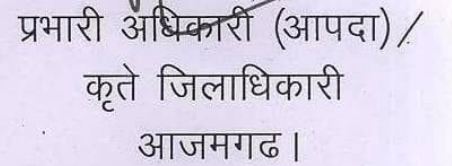 प्रभारी अधिकारी (आपदा)/
कृते जिलाधिकारी
आजमगढ।